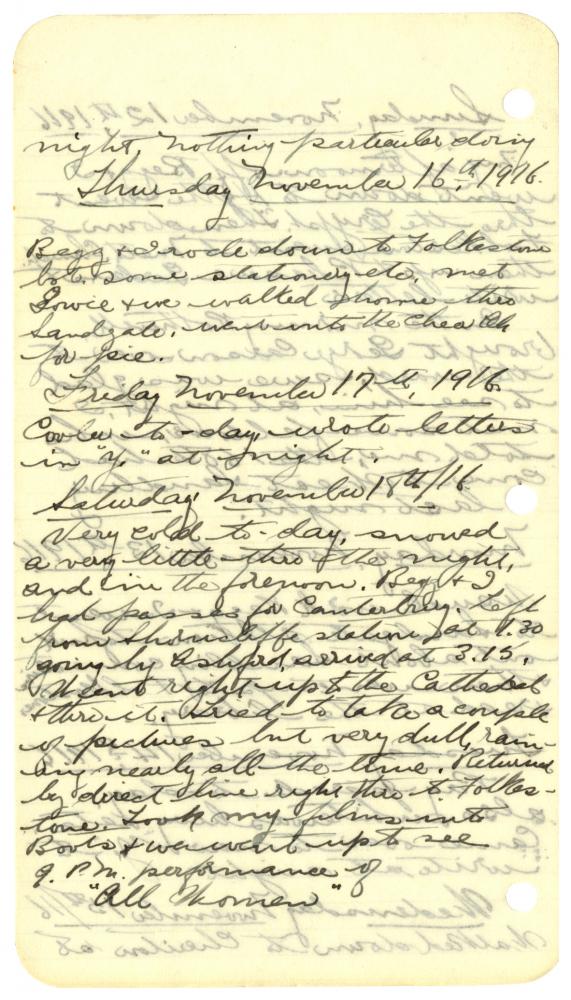 night, nothing particular doing
Thursday November 16th, 1916.
Begg & I rode down to Folkestone
bot. some stationery etc. met
Bowie & we walked home thro
Sandgate. went into the
for pie.
Friday November 17th, 1916.
Cooler to-day, wrote letters
in "Y" at night.
Saturday November 18th/16
Very cold to-day, snowed
a very little thro the night,
and in the forenoon. Begg & I
had passes for Canterbury. Left
from Shorncliffe station at 1.30
going by Ashford, arrived at 3.15.
Went right up to the Cathedral
& thro it. Tried to take a couple
of pictures but very dull, rain-
ing nearly all the time. Returned
by direct line right thro to Folkes-
tone. Took my films into
Boots & we went up to see
9. P.M. performance of
"All Women"